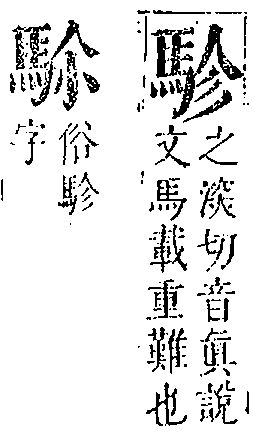 駗
之深切音眞說
文馬載重難也
俗駗
字